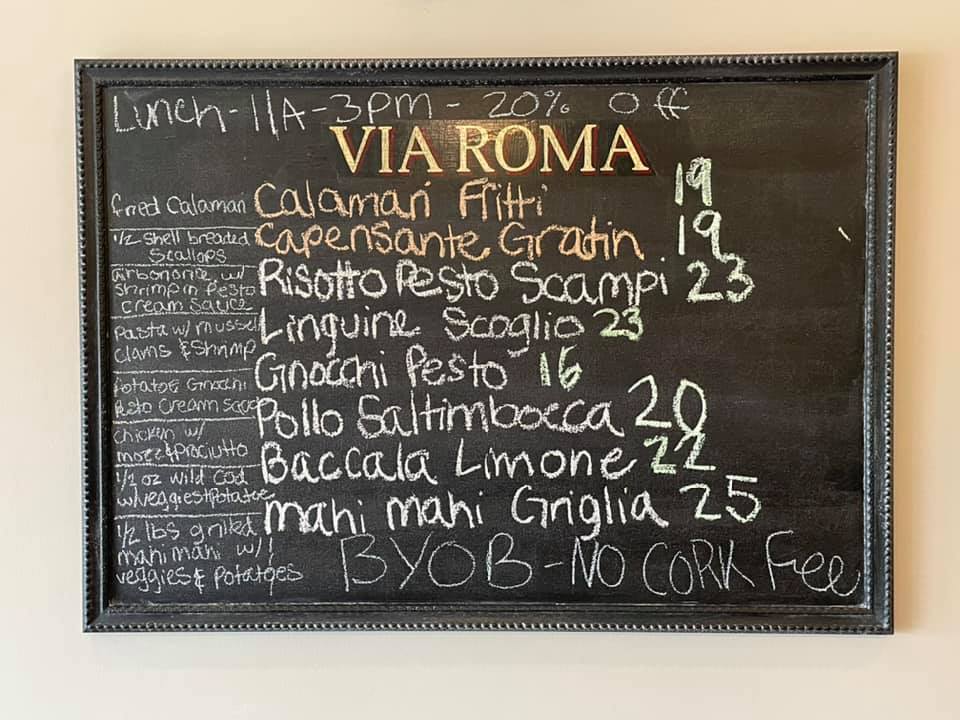 Lunch-11A-3PM- 20% Off
VIA ROMA
fried Calamari Calamari Fritti 19
1/2 shell breaded
Scallops
Capensante Gratin 19
Arbononie w/
Shrimp in Pesto
Cream Sauce
Risotto Pesto Scampi 23
Pasta w/ mussel
Clams & Shrimp
Linguine Scoglio 23
Potatoe Gnocchi
Pesto Cream Sauce
Gnocchi Pesto 16
Chicken w/
mozz & Prociutto
Pollo Saltimbocca 20
1/2 oz wild Cod
w/veggies+Potatoe
Baccala Limone 22
1/2 lbs grilled
mahi mahi w/
veggies & Potatoes
mahi mahi Griglia 25
BYOB-NO CORK Fee